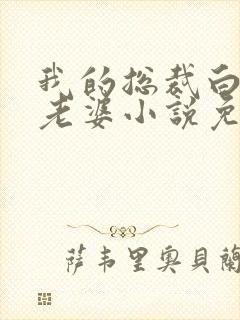 我的总裁白
老婆小説免
萨韦里奥贝蘭